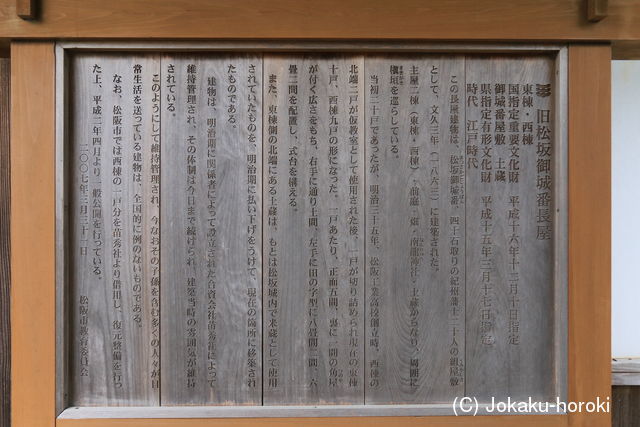 旧松坂御城番長屋
東棟・西棟
国指定重要文化財　平成十六年十二月十日指定
御城番屋敷　土蔵
県指定有形文化財　平成十五年三月十七日指定
時代　江戸時代
この長屋建物は、松坂御城番、四十石取りの紀州藩士二十人の組屋敷
として、文久三年（一八六三）に建築された。
主屋二棟（東棟・西棟）・前庭・畑・南龍神社・土蔵からなり、周囲に
槇垣を巡らしている。
当初二十戸であったが、明治三十五年、松阪工業高校創立時、西棟の
北端二戸が仮教室として使用された後、一戸が切り詰められ現在の東棟
十戸、西棟九戸の形になった。一戸あたり、正面五間、裏に一間の角屋
が付く広さをもち、右手に通り土間、左手に田の字型に八畳間二間、六
畳二間を配置し、式台を構える。
また、東棟側の北端にある土蔵は、もとは松坂城内で米蔵として使用
されていたものを、明治期に払い下げをうけて、現在の箇所に移築され
たものである。
建物は、明治期に関係者によって設立された合資会社苗秀社によって
維持管理され、その体制は今日まで続けられ、建築当時の雰囲気が維持
されている。
このようにして維持管理され、今なおその子孫を含む多くの人々が日
常生活を送っている建物は、全国的に例のないものである。
なお、松阪市では西棟の一戸分を苗秀社より借用し、復元整備を行っ
た上、平成二年四月より一般公開を行っている。
二〇〇七年三月三十一日　松阪市教育委員会
(C) Jokaku-horoki